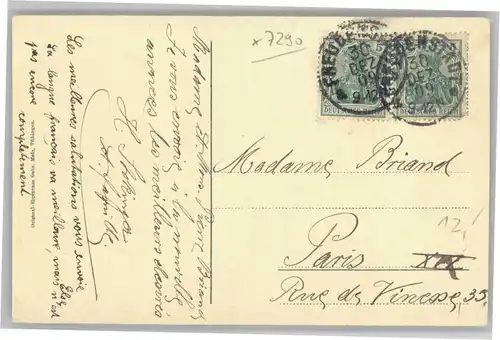 x 7290
FREUDENSTADT
30
DEZ
09
9-12
FREUDENSTADT
30
DEZ
09
9-12
DEUTSCHES REICH
Madame et Mons. Pierre Briand,
Je vous envoie à la nouvelle
années les meilleurs desirés
H.
Les meilleures salutations vous envoie
La langue français va meilleur, mais n'est
pas encore complètement
Madame Briand
Paris XVI
Rue de Vinesse 35,
12,-